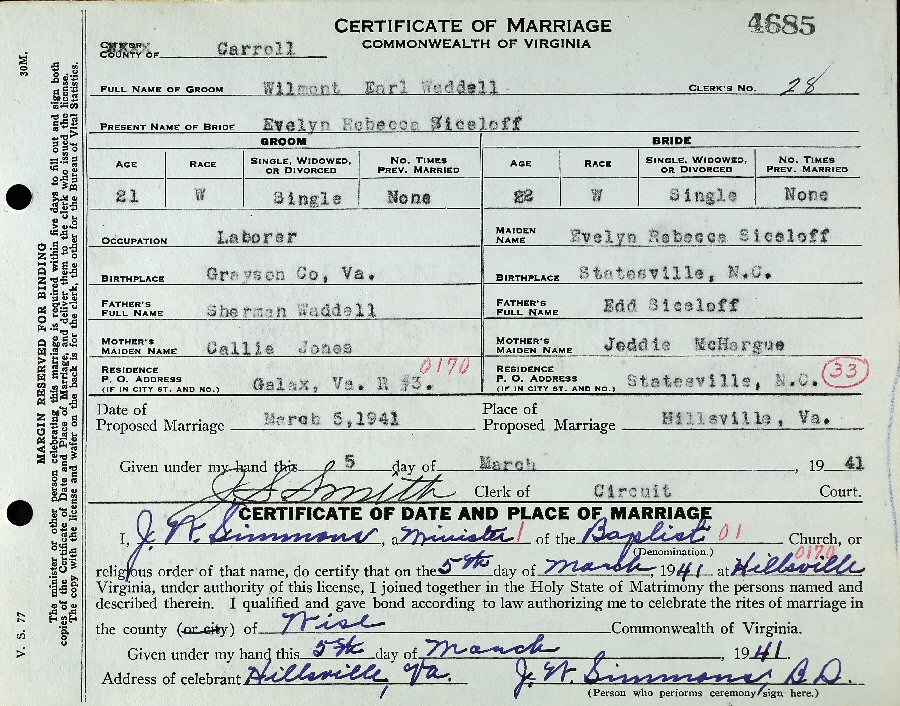 CERTIFICATE OF MARRIAGE
COMMONWEALTH OF VIRGINIA
4685
COUNTY OF Carroll
FULL NAME OF GROOM Wilmont Earl Waddell CLERK'S NO. 28
PRESENT NAME OF BRIDE Evelyn Rebecca Siceloff
GROOM BRIDE
AGE RACE SINGLE, WIDOWED, OR DIVORCED NO. TIMES PREV. MARRIED AGE RACE SINGLE, WIDOWED, OR DIVORCED NO. TIMES PREV. MARRIED
21 W Single None 22 W Single None
OCCUPATION Laborer MAIDEN NAME Evelyn Rebecca Siceloff
BIRTHPLACE Grayson Co, Va. BIRTHPLACE Statesville, N.C.
FATHER'S FULL NAME Sherman Waddell FATHER'S FULL NAME Edd Siceloff
MOTHER'S MAIDEN NAME Callie Jones MOTHER'S MAIDEN NAME Jeddie McHargue
RESIDENCE P. O. ADDRESS (IF IN CITY ST. AND NO.) Galax, Va. R #3. 0170 RESIDENCE P. O. ADDRESS (IF IN CITY ST. AND NO.) Statesville, N.C. 33
Date of Proposed Marriage March 5,1941 Place of Proposed Marriage Hillsville, Va.
Given under my hand this 5 day of March, 1941
J S Smith Clerk of Circuit Court.
CERTIFICATE OF DATE AND PLACE OF MARRIAGE
I, J. W. Simmons, a Minister 1 of the Baptist 01 Church, or
(Denomination.) 0170
religious order of that name, do certify that on the 5th day of March, 1941 at Hillsville
Virginia, under authority of this license, I joined together in the Holy State of Matrimony the persons named and
described therein. I qualified and gave bond according to law authorizing me to celebrate the rites of marriage in
the county (or city) of Wise Commonwealth of Virginia.
Given under my hand this 5th day of March, 1941.
Address of celebrant Hillsville, Va. J. W. Simmons, B.D.
(Person who performs ceremony sign here.)
V. S. 77 30M.
MARGIN RESERVED FOR BINDING
The minister or other person celebrating this marriage is required within five days to fill out and sign both
copies of the Certificate of Date and Place of Marriage, and deliver them to the clerk who issued the license.
The copy with the license and wafer on the back is for the clerk, the other for the Bureau of Vital Statistics.